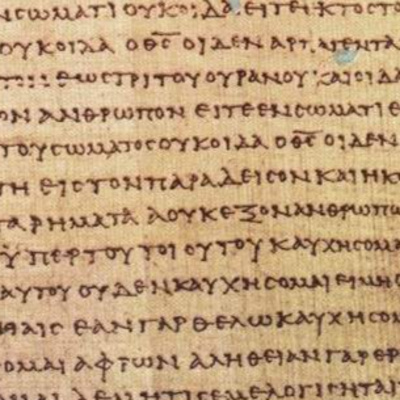 ΝϹΩΜΑΤΙ ΟΥΚΟΙΔΑ ΕΙΤΕΕΚΤΟϹΤΟ
ΟΥΚΟΙΔΑ Ο Θ̅Ϲ̅ ΟΙΔΕΝ ΑΡΠΑΓΕΝΤΑ
ΕΩϹΤΡΙΤΟΥΟΥΡΑΝΟΥ ΚΑΙΟΙΔΑ
ΟΝ ΑΝΘΡΩΠΟΝ ΕΙΤΕΕΝϹΩΜΑΤΙ Ε
ΤΟΥϹΩΜΑΤΟϹΟΥΚΟΙΔΑ Ο Θ̅Ϲ̅ ΟΙΔΕΝ
ΓΗ ΕΙϹΤΟΝΠΑΡΑΔΕΙϹΟΝ ΚΑΙΗΚ
ΤΑΡΗΜΑΤΑ ΑΟΥΚΕΞΟΝΑΝΘΡΩΠΩ
Υ̇ΠΕΡΤΟΥΤΟΙΟΥΤΟΥ ΚΑΥΧΗϹΟΜΑ
ΑΥΤΟΥ ΟΥΔΕΝΚΑΥΧΗϹΟΜΑΙΕΙΜΗ
ΑΙϹ ΕΑΝΓΑΡΘΕΛΩΚΑΥΧΗϹΟΜ
ΟΜΑΙ ΑΦΡΩΝ ΑΛΗΘΕΙΑΝΓΑΡΕΡ
ΜΗΤΙϹΕΜΕΛΟΓΙϹΗΤΑΙ